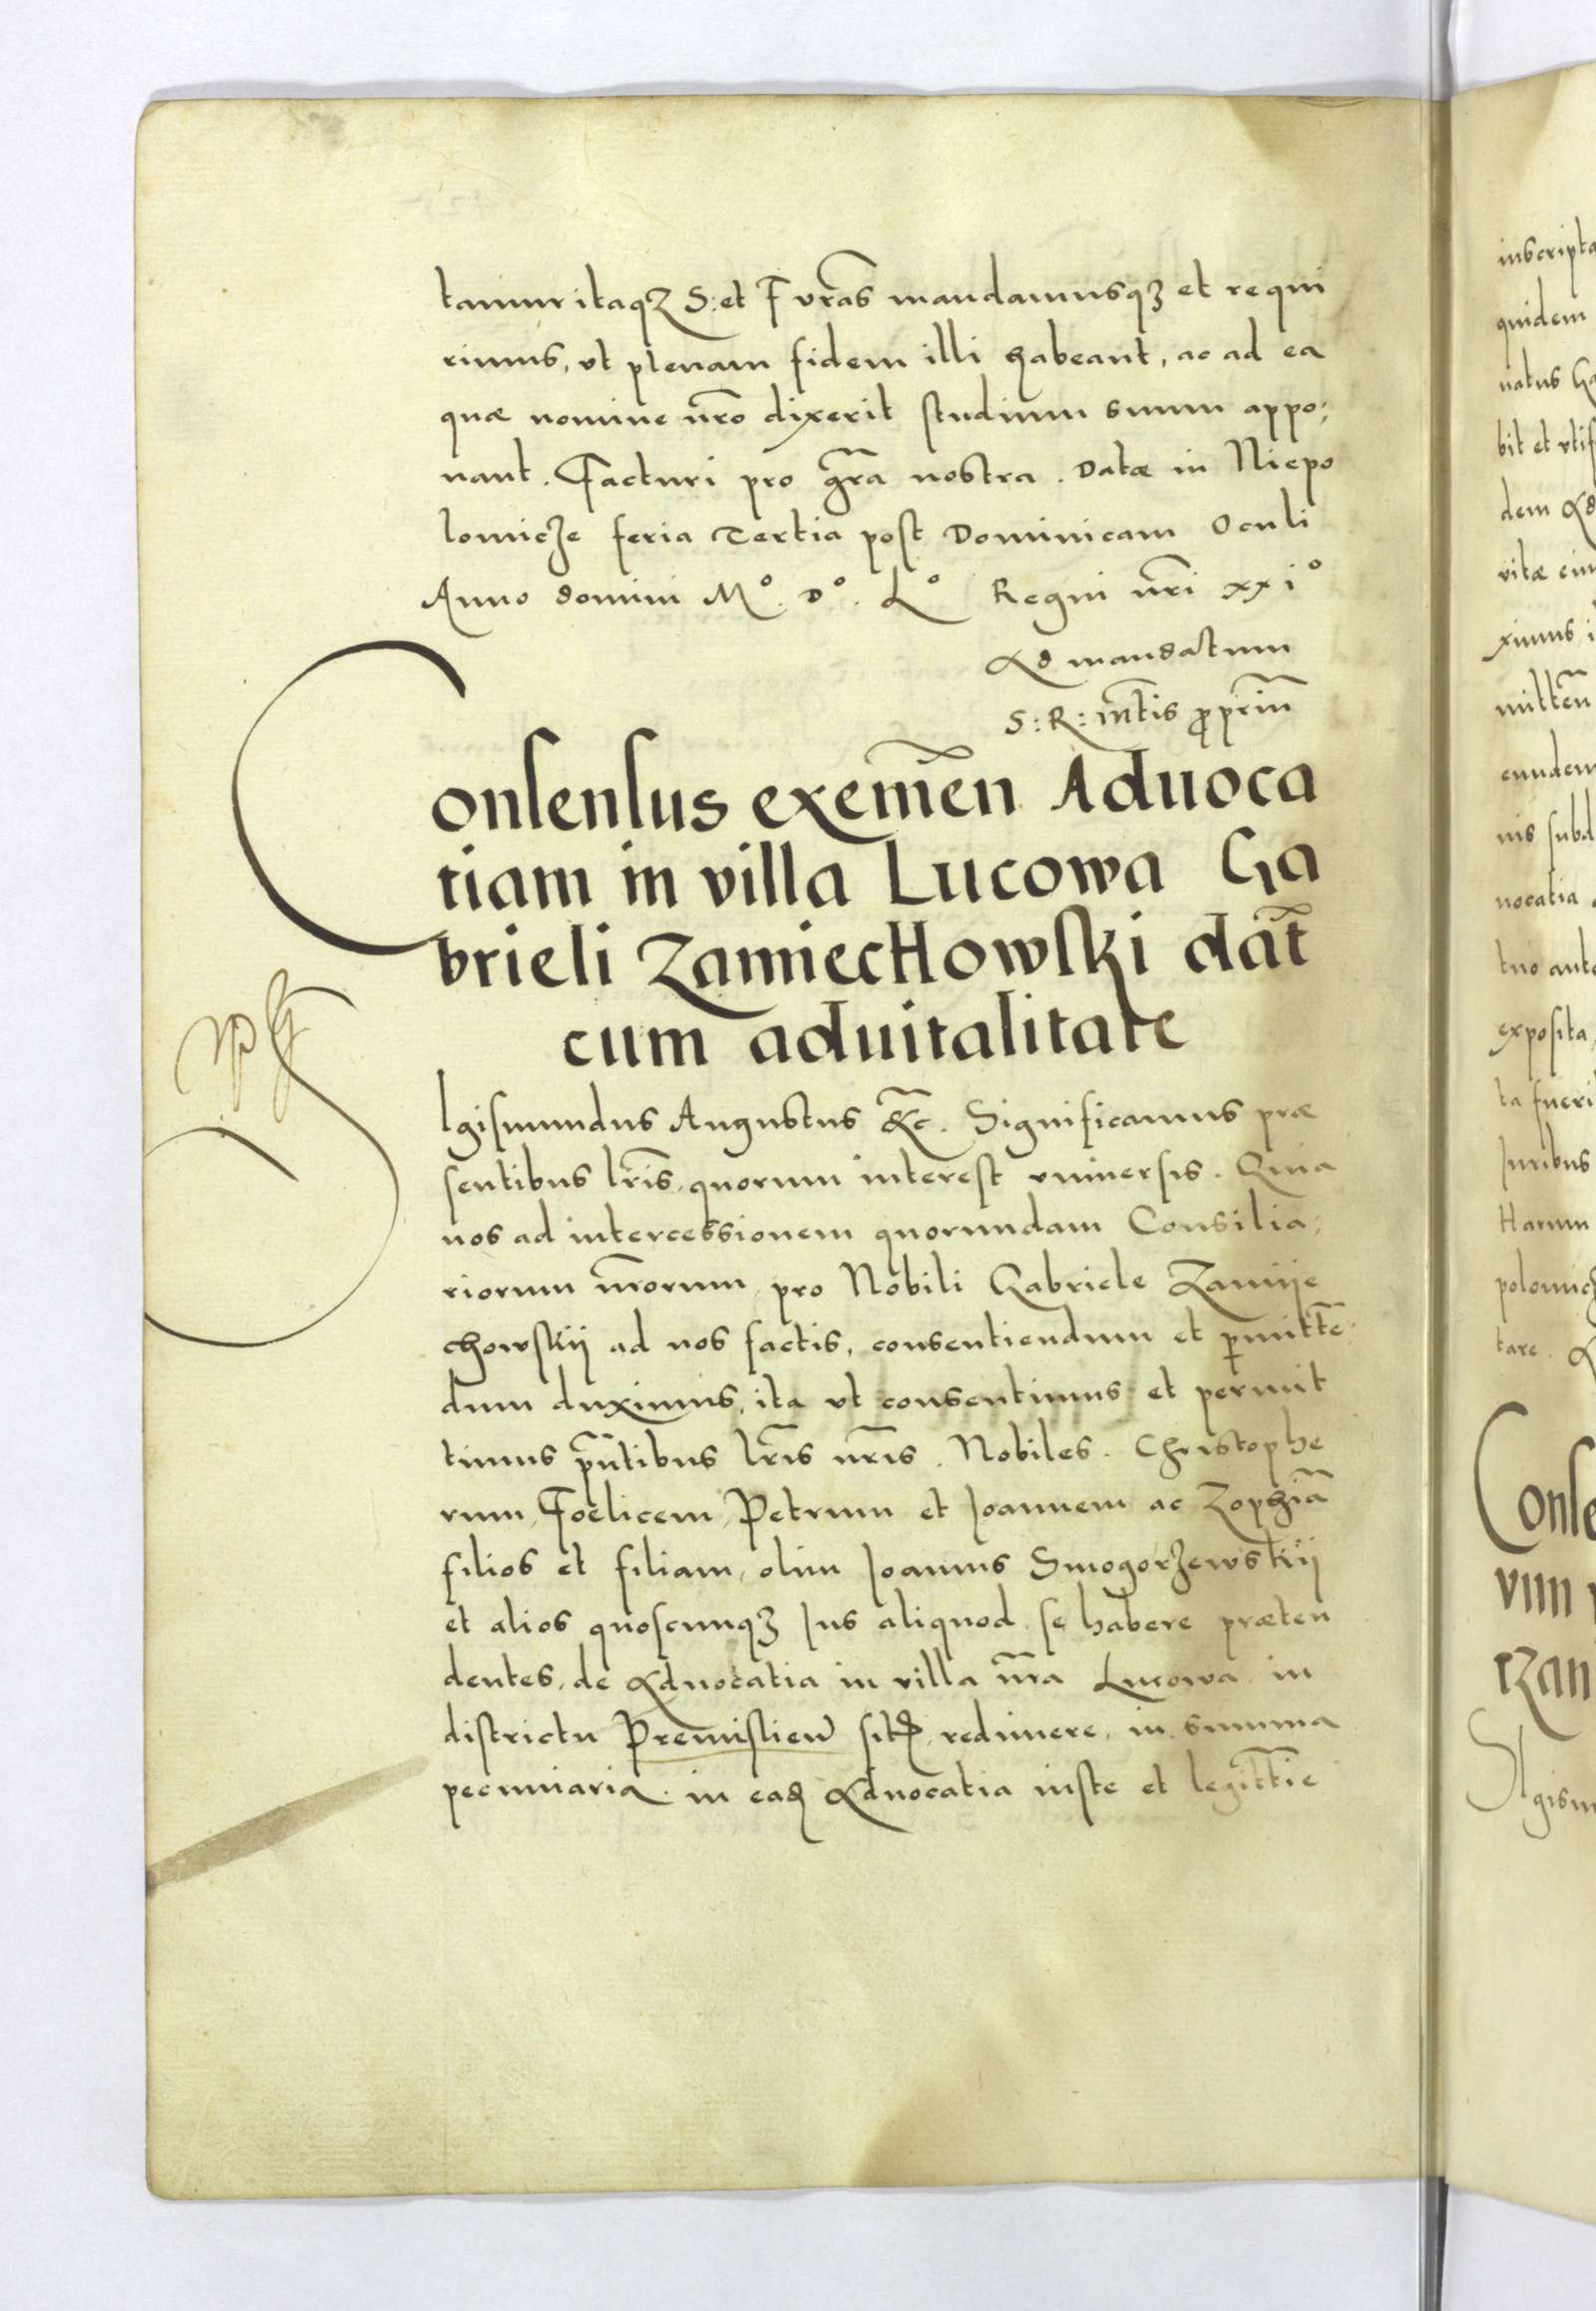 tamur itaqȝ S: et F vr̃as mandamusqȝ et requi
rimus, vt plenam fidem illi habeant, ac ad ea
quæ nomine nr̃o dixerit studium suum appo:
nant. Facturi pro gr̃a nostra. Datæ in Niepo
lomicze feria Tertia post Dominicam Oculi
Anno domini Mº. Dº. Lº Regni nr̃i xxiº
Ad mandatum
S: R: mt̃is ꝓpriũ
Consensus exemẽn Aduoca
tiam in villa Lucowa Ga
brieli Zamiechowski dat̃
cum aduitalitate
SIgismundus Augustus &c̃. Significamus præ
sentibus lr̃is, quorum interest vniuersis. Quia
nos ad intercessionem quorundam Consilia:
riorum nr̃orum, pro Nobili Gabriele Zamije
chowskij ad nos factis, consentiendum et ꝑmittẽ:
dum duximus, ita vt consentimus et permit
timus p̃ntibus lr̃is nr̃is. Nobiles. Christophe
rum, Foelicem, Petrum et Ioannem ac Zophiã
filios et filiam, olim Ioannis Smogorzewskij
et alios quoscunqȝ Ius aliquod se habere præten
dentes, de Aduocatia in villa nr̃a Lucowa in
districtu Premislien̄ sitꝭ, redimere, in summa
pecuniaria in eaꝺ Aduocatia iuste et legitt̃ie
inscripta
quidem
natus Ga
bit et vtif
dem Ad
vitæ eiu
ximus, i
mittẽn
eundem
nis subd
uocatia
tuo ante
exposita
ta fueri
Iuribus
Harum
polomicz
tare. A
Conse
vnn
czan
SIgism